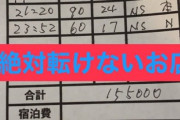 21:20 90 24 NS 否
23:52 60 17 NS
絶対転けないお店
合計 155000
宿泊費